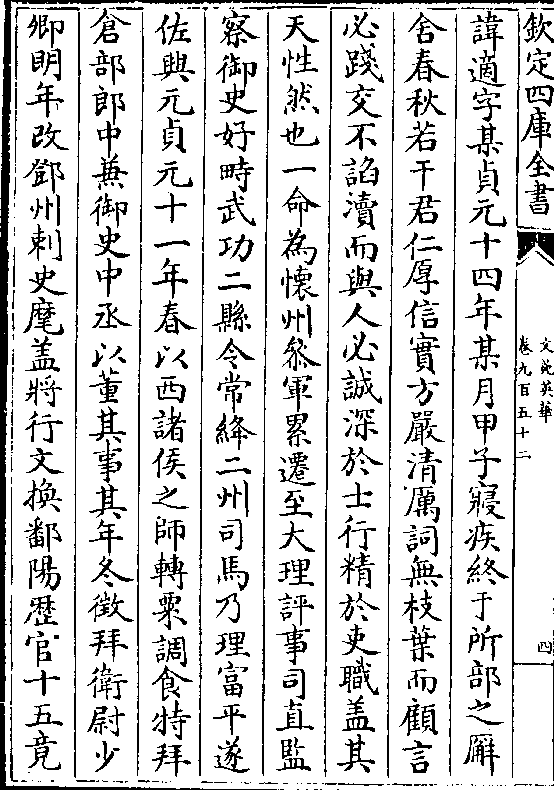 欽定四庫全書
文苑英華
卷九百五十二
四
諱適字某貞元十四年某月甲子寢疾終于所部之廨
舍春秋若干君仁厚信實方嚴清厲詞無枝葉而顧言
必踐交不諂瀆而與人必誠深於士行精於吏職盖其
天性然也一命為懷州叅軍累遷至大理評事司直監
察御史好畤武功二縣令常絳二州司馬乃理富平遂
佐興元貞元十一年春以西諸侯之師轉粟調食特拜
倉部郎中兼御史中丞以董其事其年冬徵拜衛尉少
卿明年改鄧州刺史麾盖將行文換鄱陽歷官十五竟